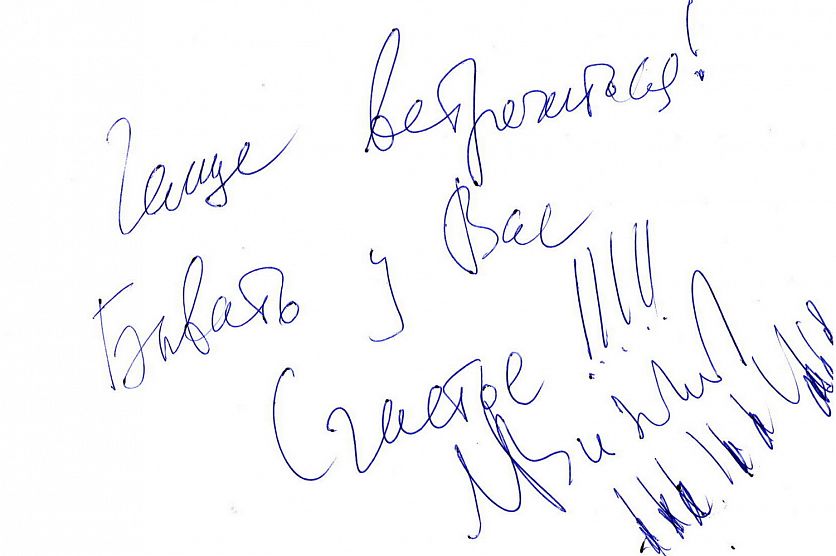 Чаще встречаться!
Бывать у Вас
Счастье!!!!!